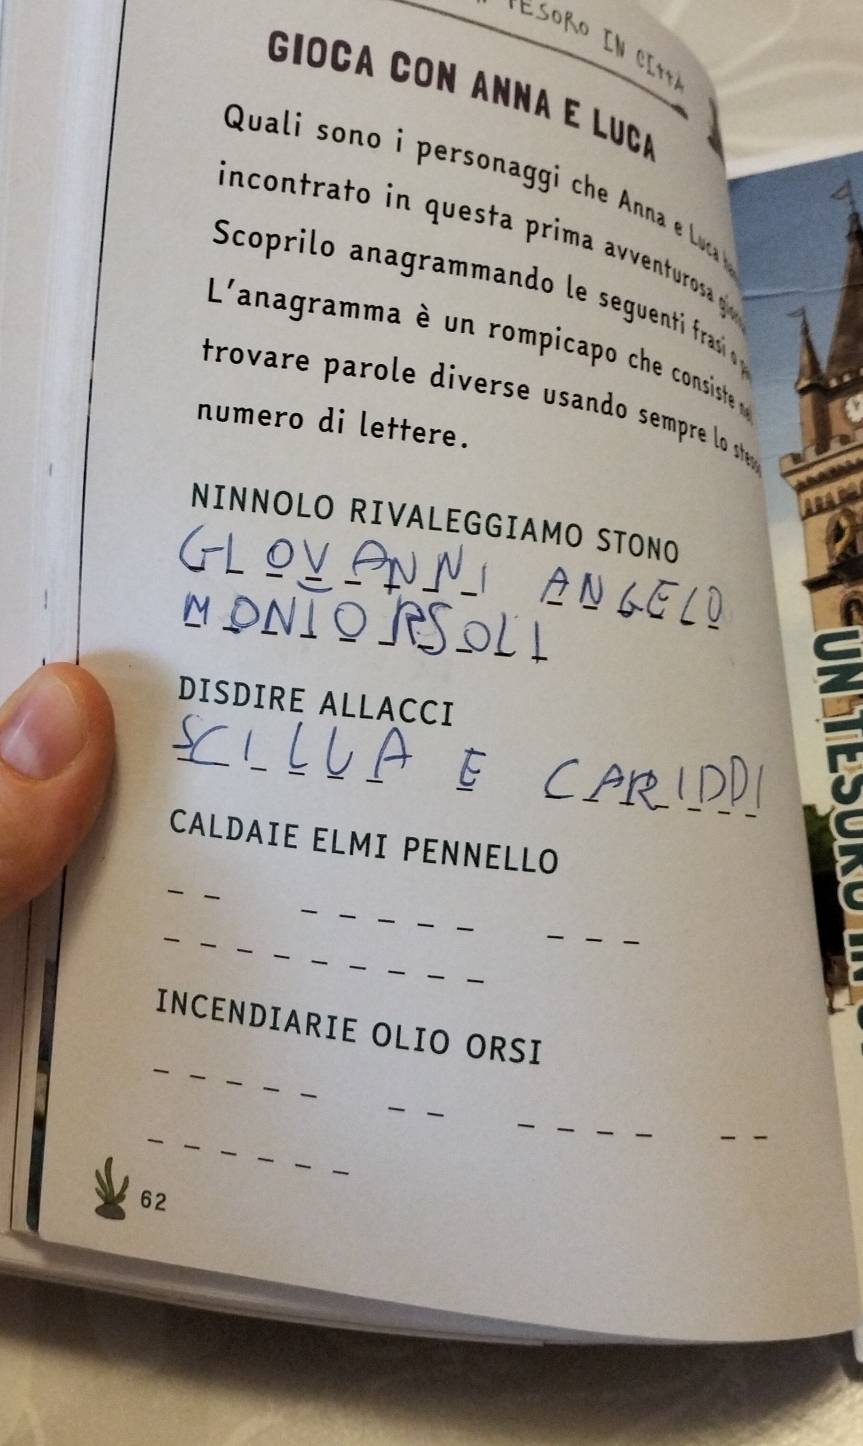 TESORO IN CITTÀ
GIOCA CON ANNA E LUCA
Quali sono i personaggi che Anna e Luca
incontrato in questa prima avventurosa
Scoprilo anagrammando le seguenti frasi o
L'anagramma è un rompicapo che consiste
trovare parole diverse usando sempre lo
numero di lettere.
NINNOLO RIVALEGGIAMO STONO
GIOVANNI ANGELO
MONTORSOLI
DISDIRE ALLACCI
SCILLA E CARIDDI
CALDAIE ELMI PENNELLO
INCENDIARIE OLIO ORSI
62
UN TESORO IN